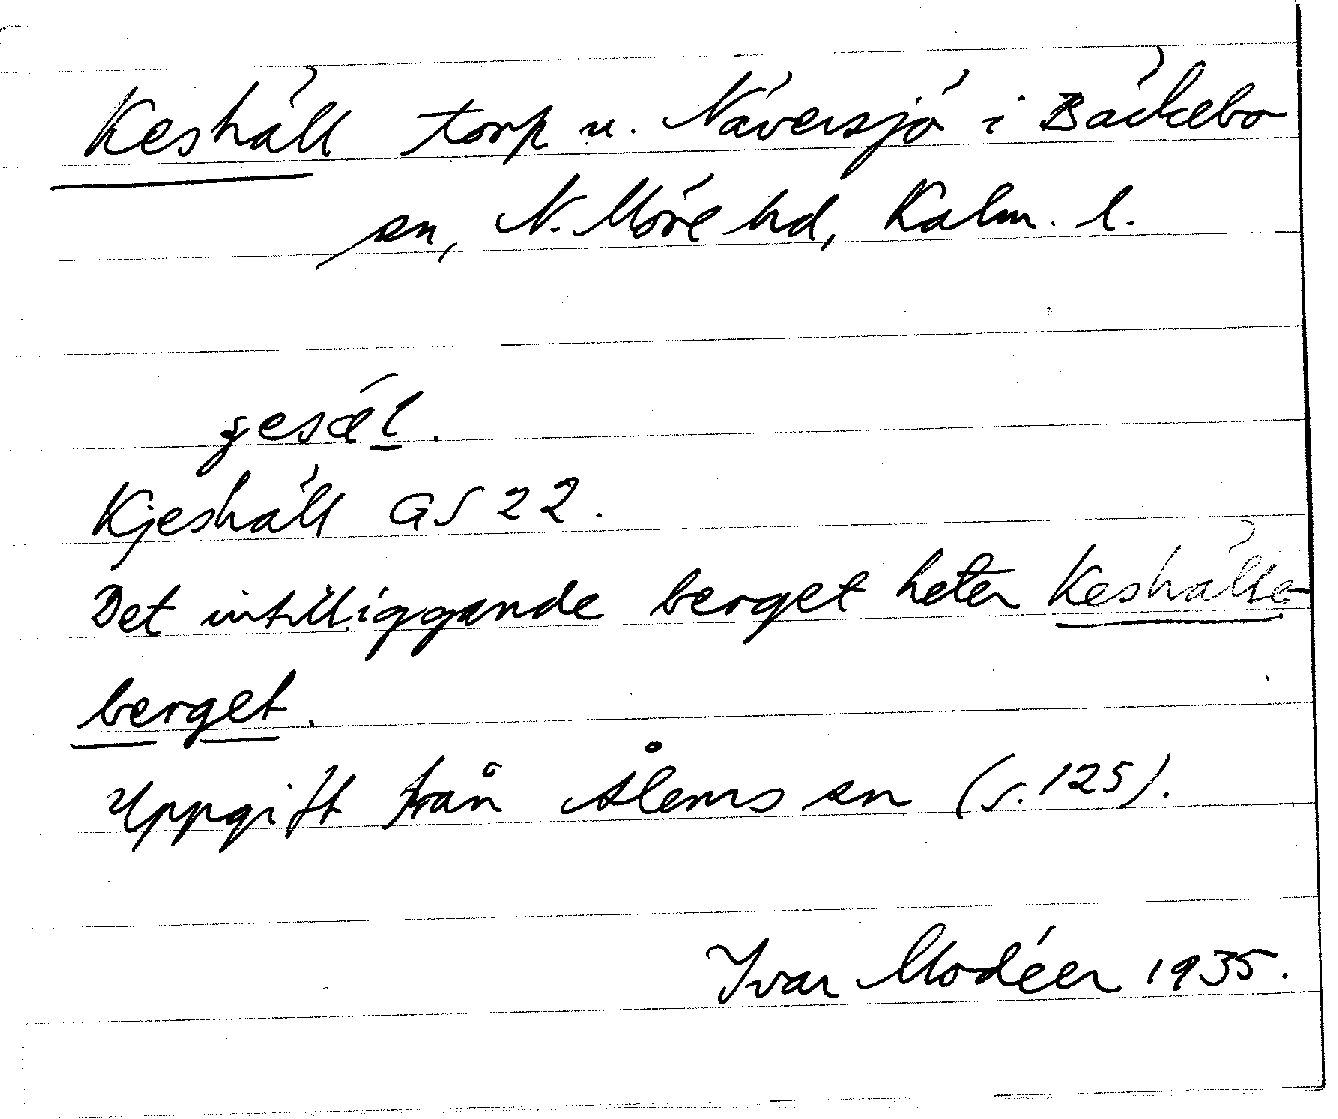 Keshäll torp u. Näversjö i Bäckebo
sn, N. Möre hd, Kalm. l.
Kjeshäll GS 22.
Det intilliggande berget heter Keshälla-
berget.
Uppgift från Ålems sn (s. 125).
Ivar Modéer 1935.